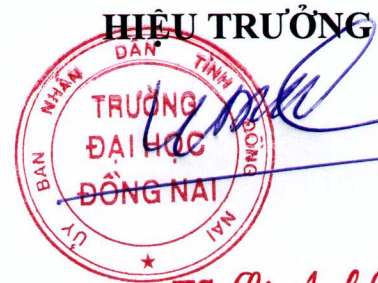 HIỆU TRƯỞNG
ỦY BAN NHÂN DÂN TỈNH ĐỒNG NAI
TRƯỜNG
ĐẠI HỌC
ĐỒNG NAI